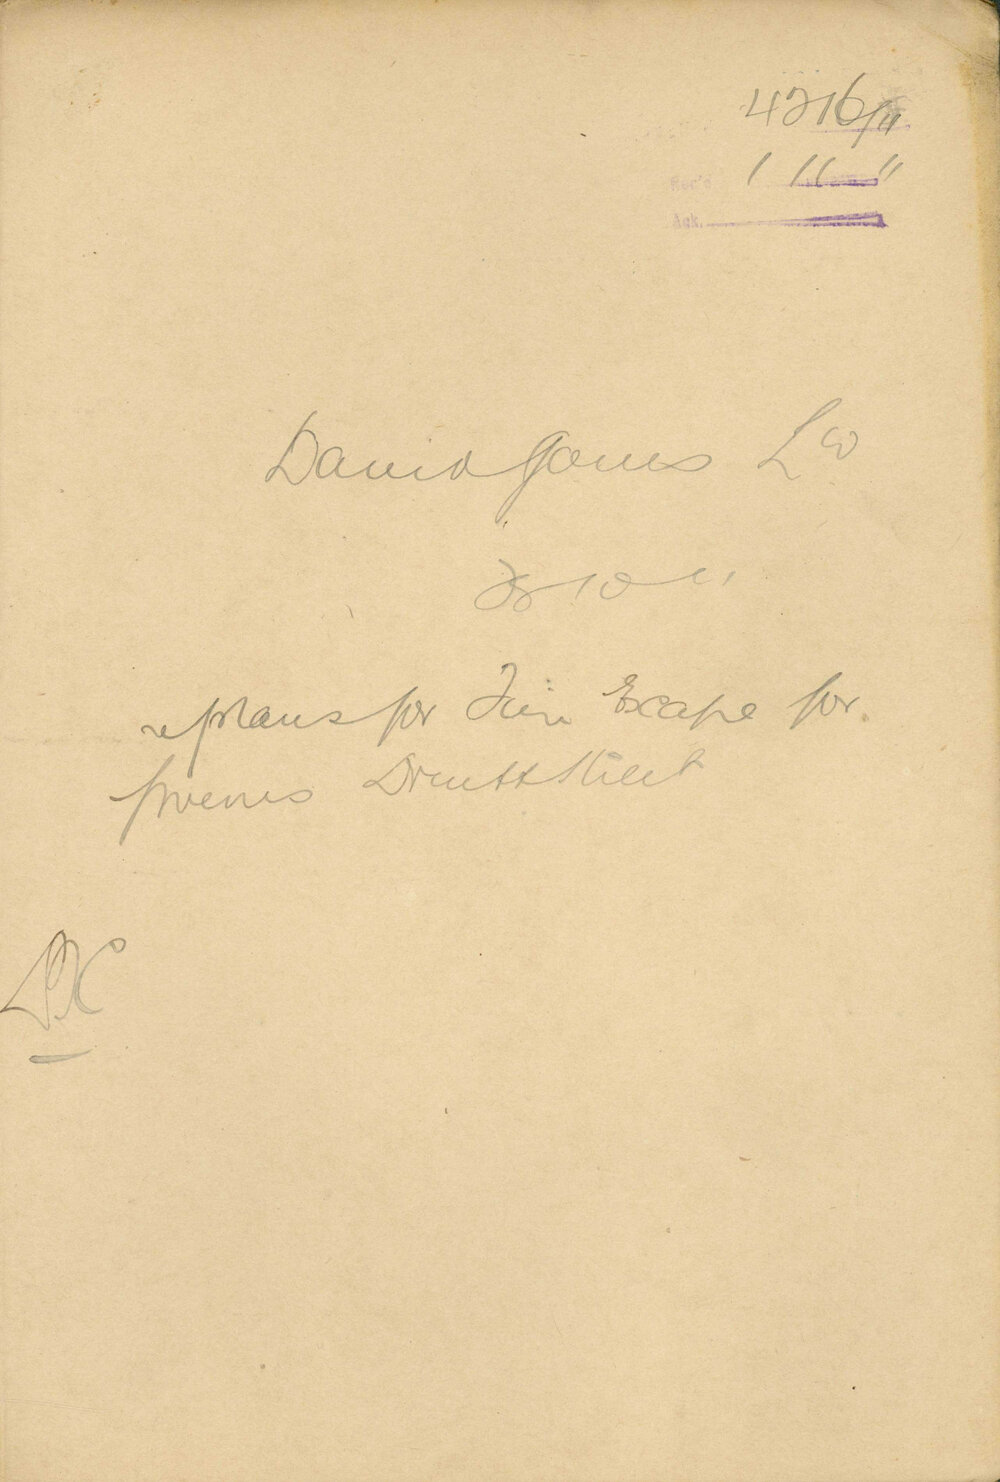 4216/11
Rec'd 1 11 11
Ack.
David Jones Ld
28 10 11
re plans for Fire Escape for
premes Druitt Street